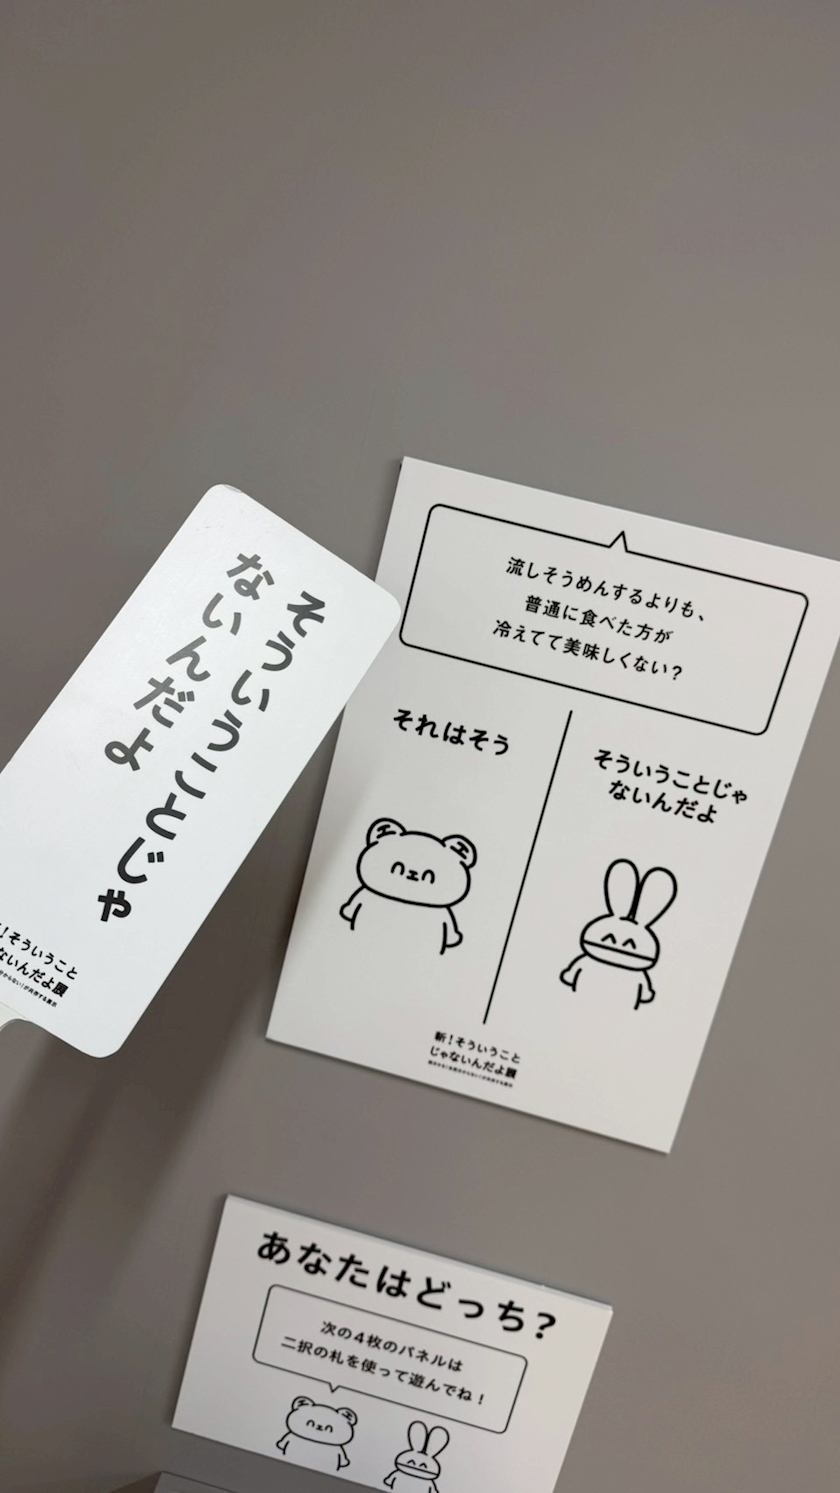 そういうことじゃ
ないんだよ
！そういうこと
ないんだよ展
流しそうめんするよりも、
普通に食べた方が
冷えてて美味しくない？
それはそう
そういうことじゃ
ないんだよ
新！そういうこと
じゃないんだよ展
あなたはどっち？
次の4枚のパネルは
二択の札を使って遊んでね！